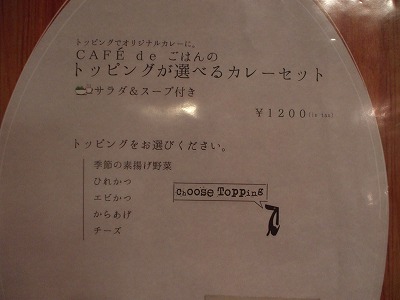 トッピングでオリジナルカレーに。
CAFÉ de ごはんの
トッピングが選べるカレーセット
サラダ＆スープ付き
￥1200(in tax)
トッピングをお選びください。
季節の素揚げ野菜
ひれかつ
エビかつ
からあげ
チーズ
choose Topping